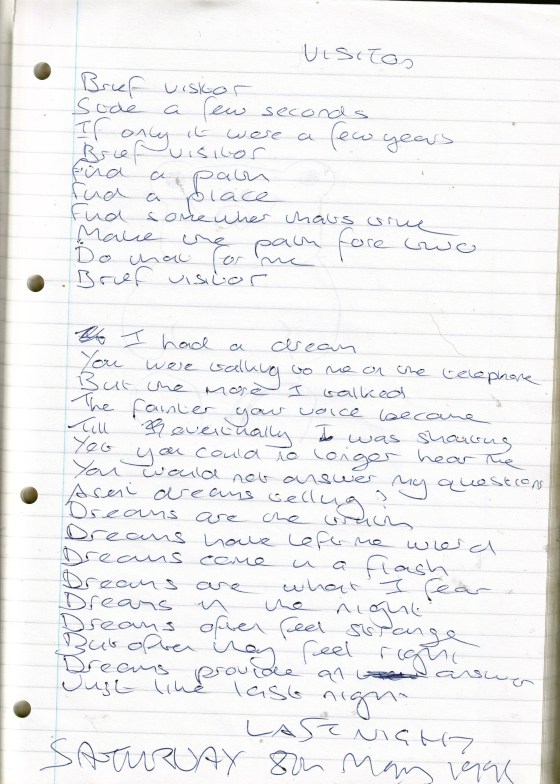 VISITOR
Brief visitor
Side a few seconds
If only it were a few years
Brief visitor
Find a path
Find a place
Find somewher thats true
Make the path fore two
Do that for me
Brief visitor
I had a dream
You were talking to me on the telephone
But the more I talked
The fainter your voice became
Till eventually I was shouting
Yet you could no longer hear me
You would not answer my questions
Arent dreams telling?
Dreams are the truth
Dreams have left me
Dreams come in a flash
Dreams are what I fear
Dreams in the night
Dreams often feel strange
But often they feel right
Dreams provide an answer
Just like last night
LAST NIGHT
SATURDAY 8th May